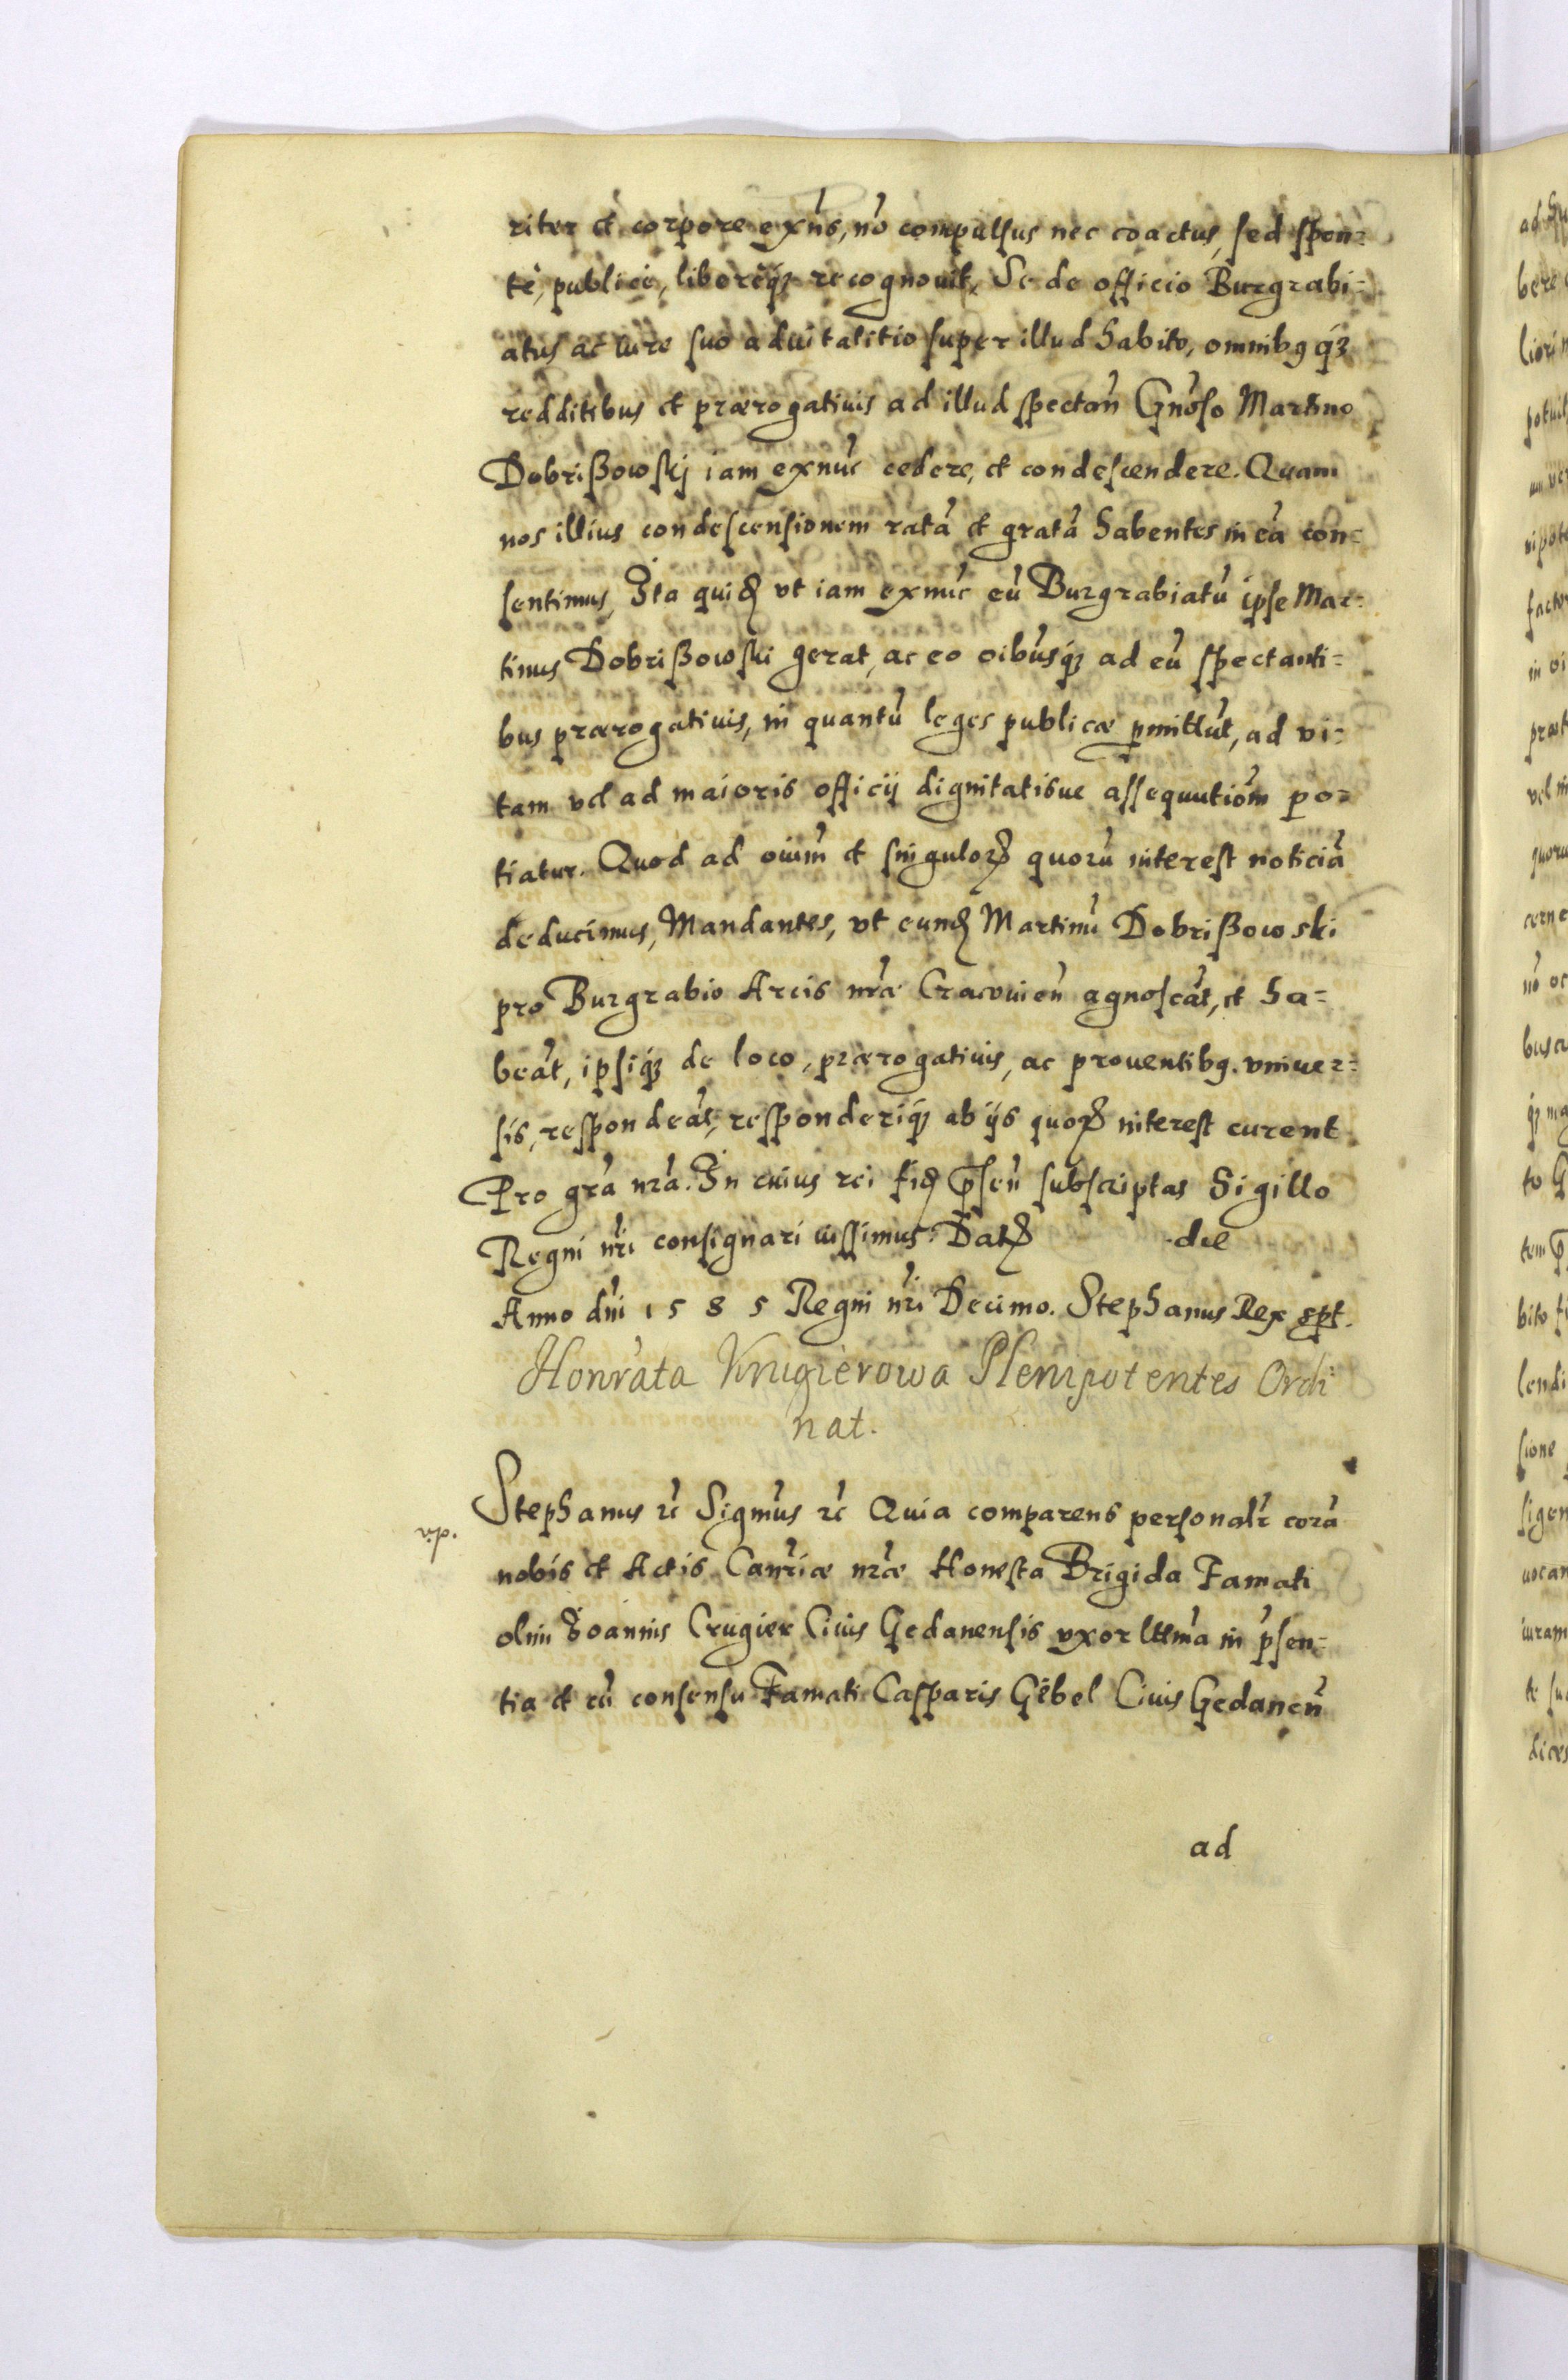 riter et corpore exn̄s, nō compulsus nec coactus, sed spon=
tè, publicè, liberèq́ȝ recognouit, Se de officio Burgrabi=
atus ac iure suo aduitalitio super illud habito, omnibq q́ȝ
redditibus et prærogatiuis ad illud spectan̄ Gnōso Martino
Dobrißowskij iam exnūc cedere, et condescendere. Quam
nos illius condescensionem ratā et gratā habentes in eā con=
sentimus, Ita quiđ vt iam exnūc eū Burgrabiatū ipse Mar=
tinus Dobrißowski gerat, ac eo oibūsq́ȝ ad eū spectanti=
bus prærogatiuis, in quantū leges publicæ ꝑmittūt, ad vi=
tam vel ad maioris officij dignitatisue assequutiōm po=
tiatur. Quod ad oium̄ et singuloꝝ quorū interest noticiā
deducimus, Mandantes, vt eunđ Martinū Dobrißowski
pro Burgrabio Arcis nr̄æ Cracouien̄ agnoscāt, et ha=
beāt, ipsiq́ȝ de loco, prærogatiuis, ac prouentibq. vniuer=
sis, respondeāt, responderiq́ȝ ab ijs quoꝝ interest curent
Pro grā nr̄a. In cuius rei fiđ p̄sen̄ subscriptas Sigillo
Regni nr̄i consignari iussimus. Datꝝ die
Anno dn̄i 1585 Regni nr̄i Decimo. Stephanus Rex spt.
Honrata Krugierowa Plenipotentes Ordi
nat.
Stephanus rc̄ Sigmūs rc̄ Quia comparens personalr̄ corā
v.p.
nobis et Actis Canr̄iæ nr̄æ Honesta Brigida Famati
olim Joannis Crugier Ciuis Gedanensis vxor lttm̄a in p̄sen=
tia et cū consensu Famati Casparis Gëbel Ciuis Gedanen̄
ad